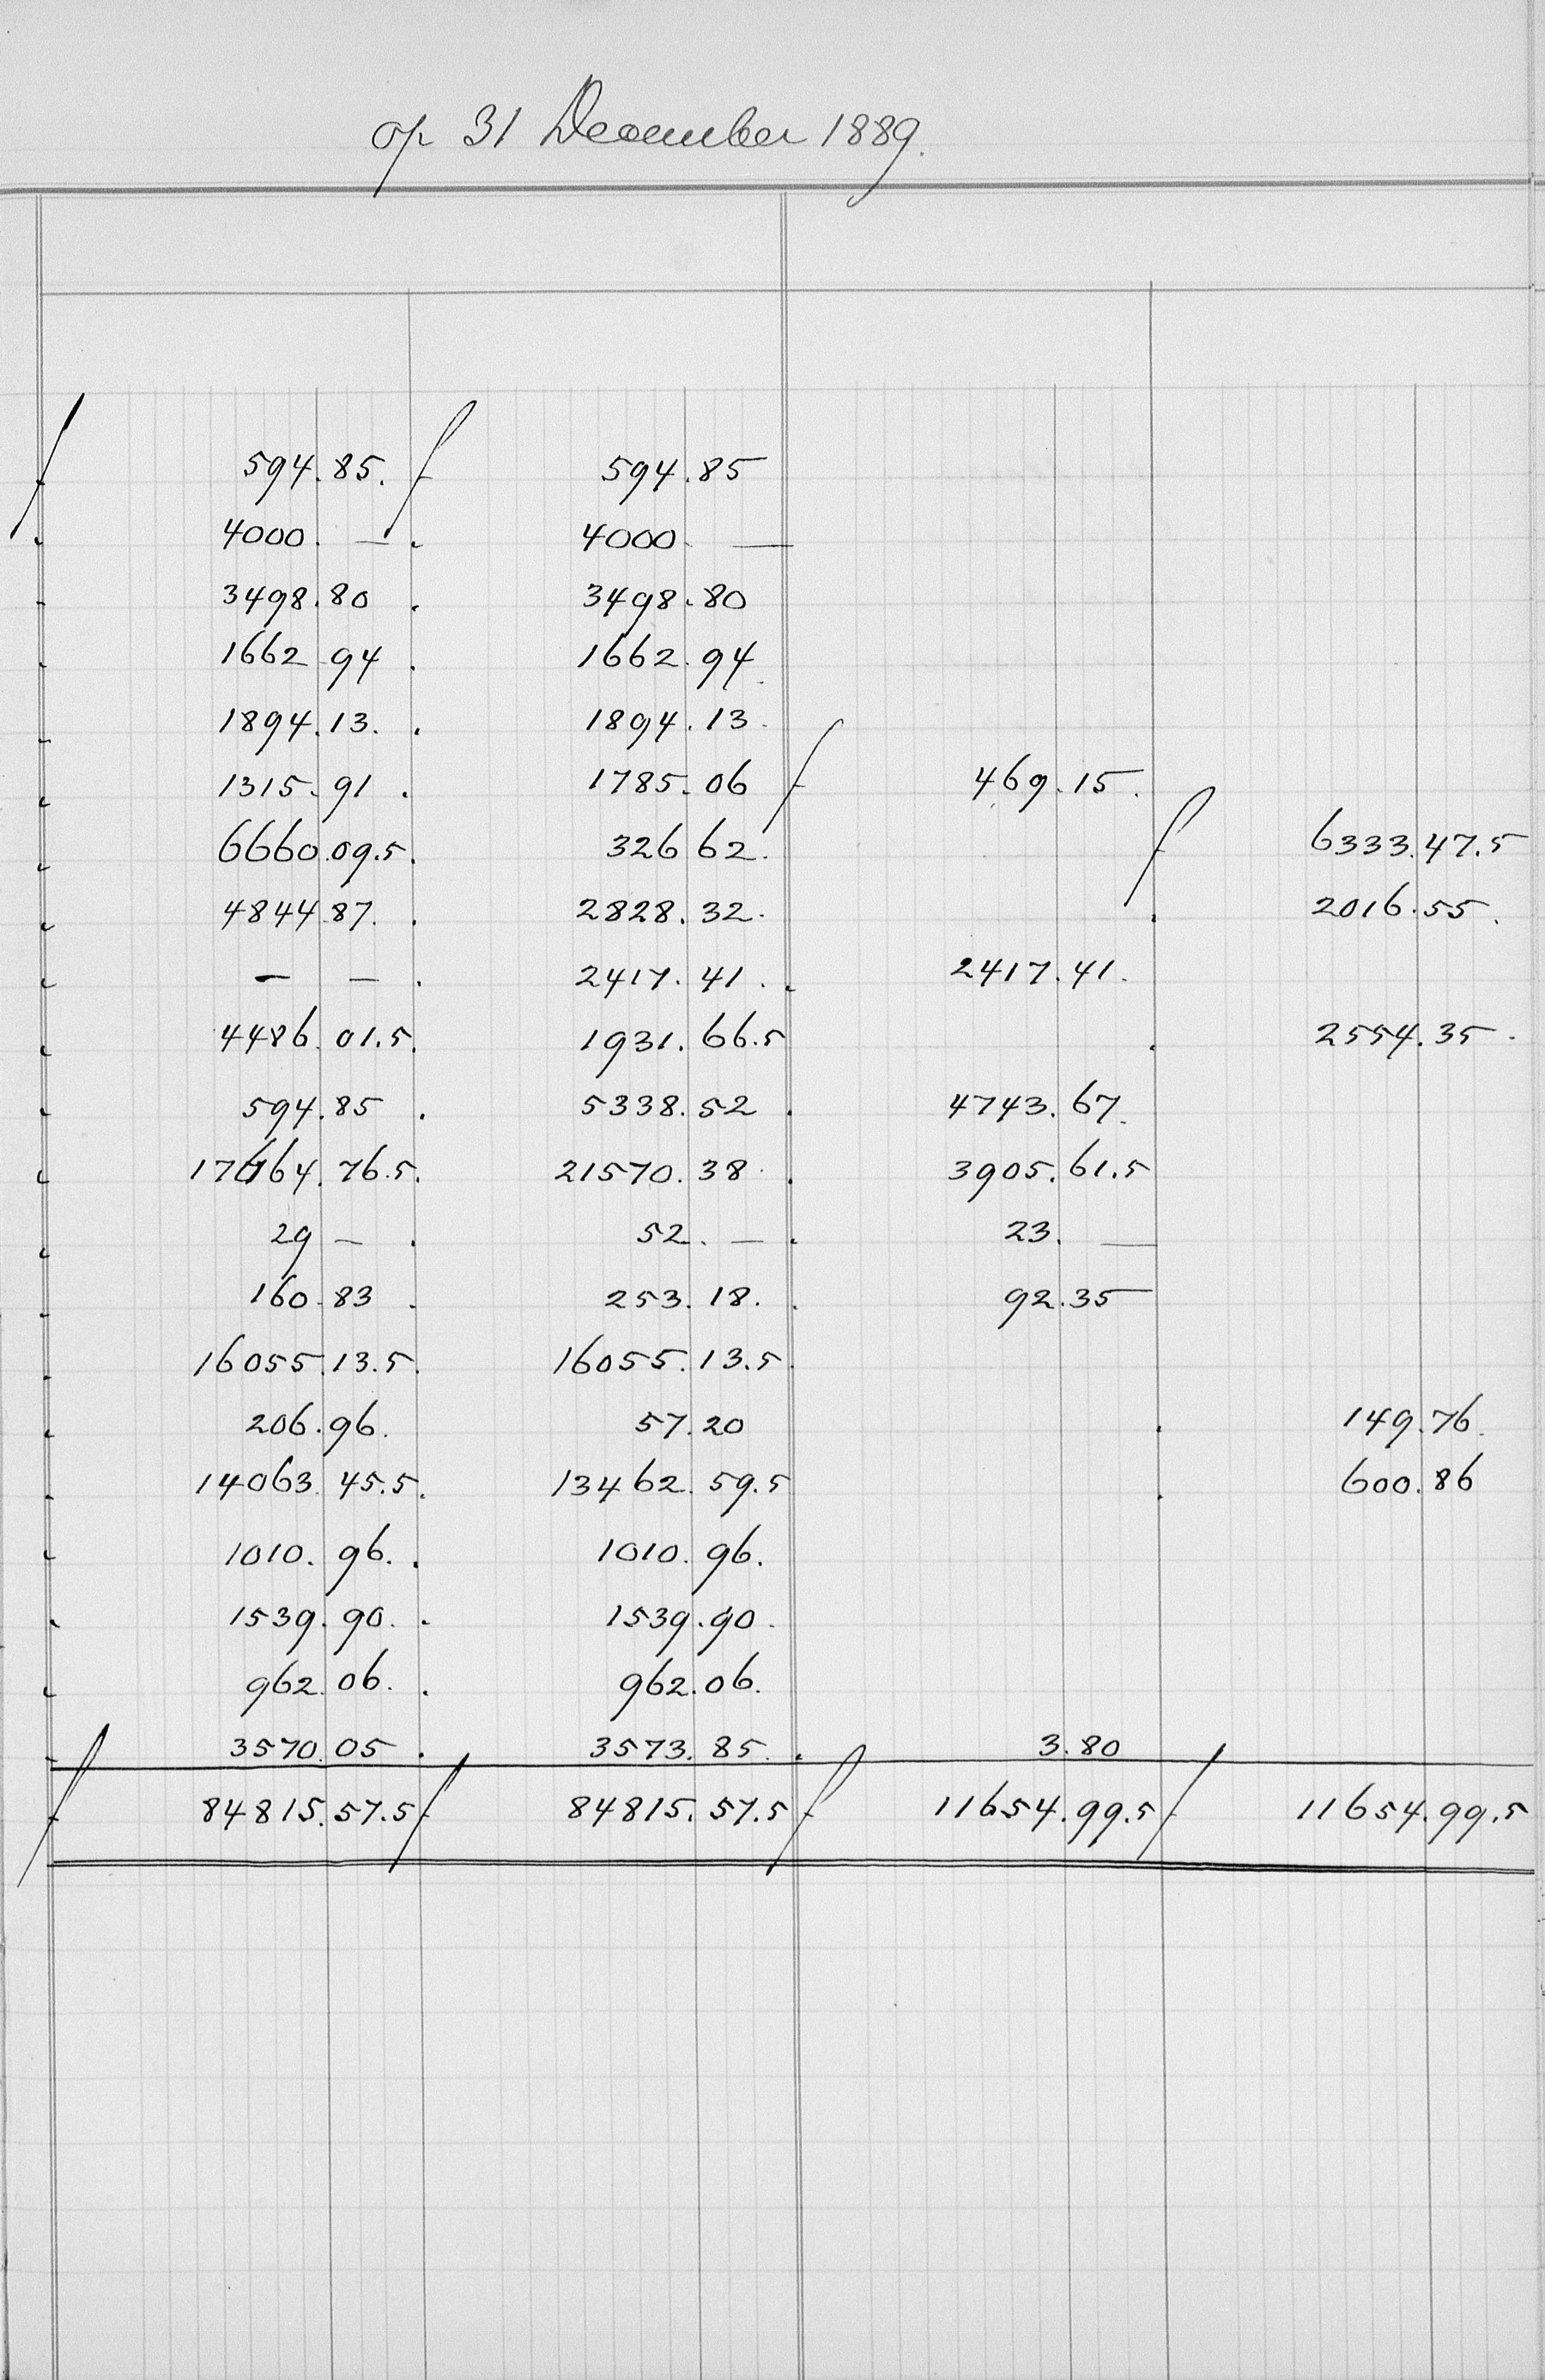 op 31 December 1889.
f 594.85. f 594.85
4000. — . 4000 —
3498.80 . 3498.80
1662 94 . 1662.94
1894.13. . 1894.13.
1315.91 . 1785.06 f 469.15.
6660.09.5. 326 62. f 6333.47.5
4844.87. . 2828.32. . 2016.55.
— — . 2417.41. . 2417.41.
4486.01.5. 1931.66.5 . 2554.35.
594.85 . 5338.52 . 4743.67.
17664.76.5. 21570.38 . 3905.61.5
29 — . 52. — . 23. —
160.83 . 253.18. . 92.35
16055.13.5. 16055.13.5.
206.96. 57.20 . 149.76.
14063.45.5. 13462.59.5 . 600.86
1010.96. . 1010.96.
1539.90. . 1539.90.
962.06. . 962.06.
3570.05 . 3573.85. . 3.80
f 84815.57.5 f 84815.57.5 f 11654.99.5 f 11654.99.5